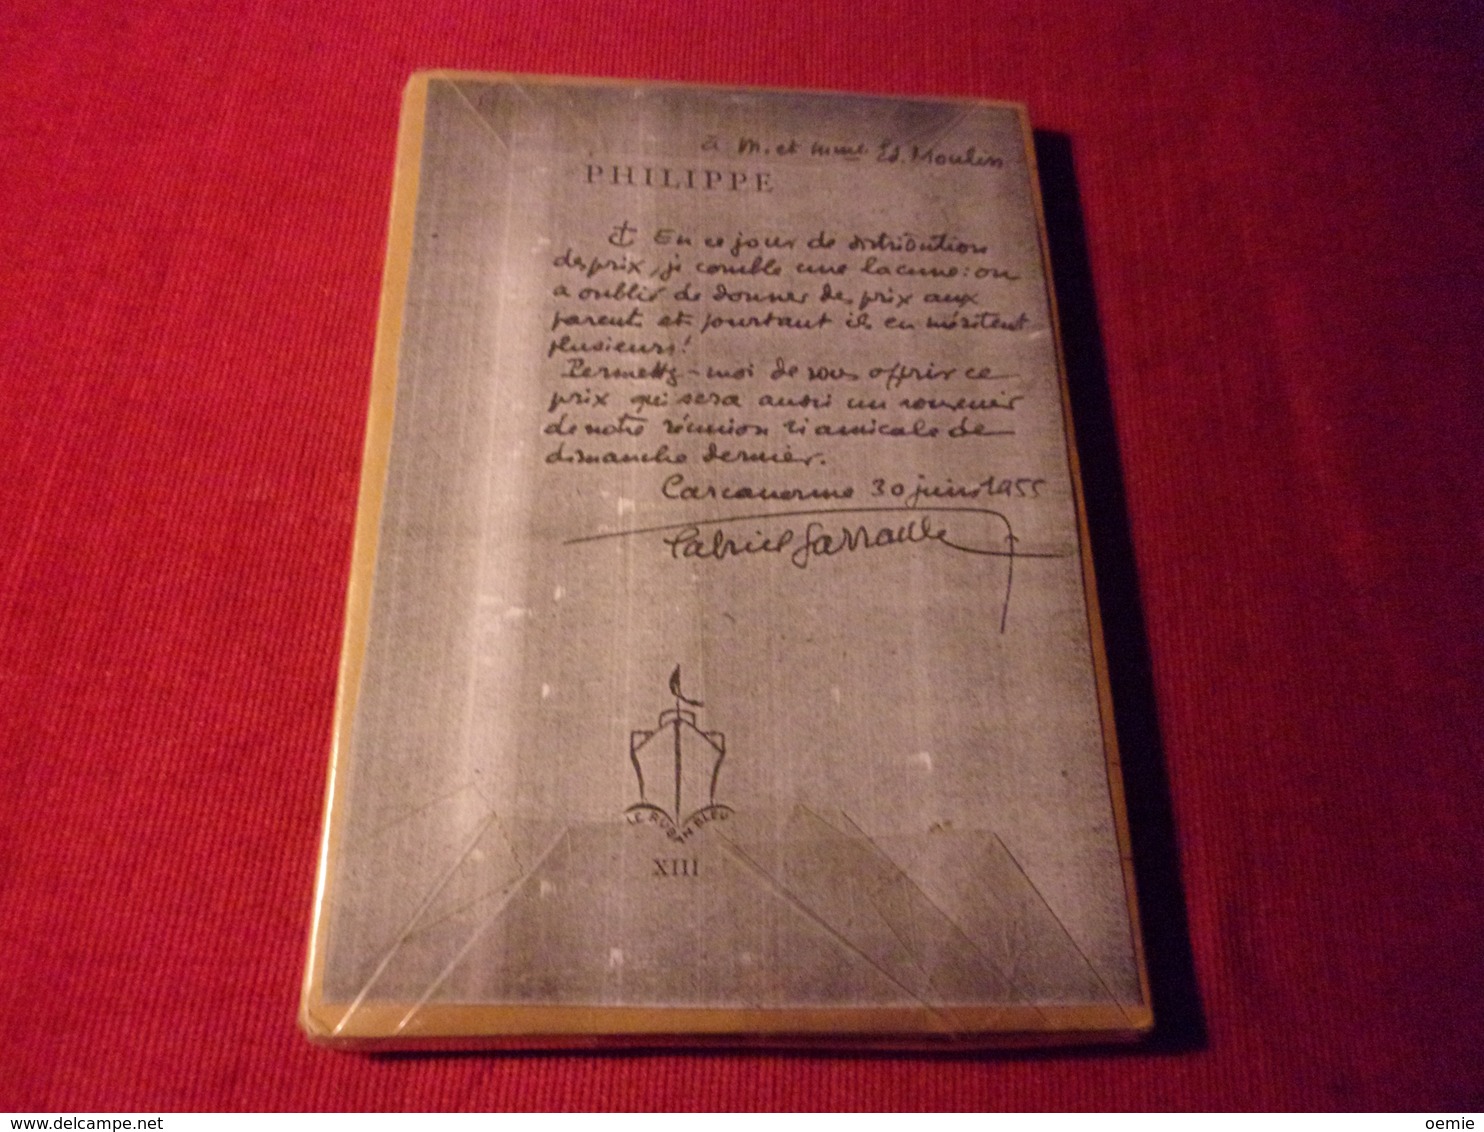 à M. et Mme Ed. Moulin
PHILIPPE
En ce jour de distribution
des prix, je comble une lacune : on
a oublié de donner des prix aux
parents et pourtant ils en méritent
plusieurs !
Permettez-moi de vous offrir ce
prix qui sera aussi un souvenir
de notre réunion si amicale de
dimanche dernier.
30 juin 1955
Gabriel
LE RUBAN BLEU
XIII
www.delcampe.net
oemie